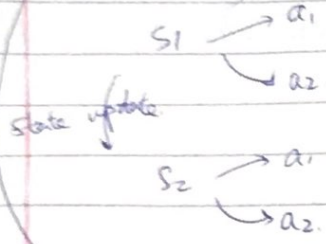 S1 a1
a2
state update
S2 a1
a2.